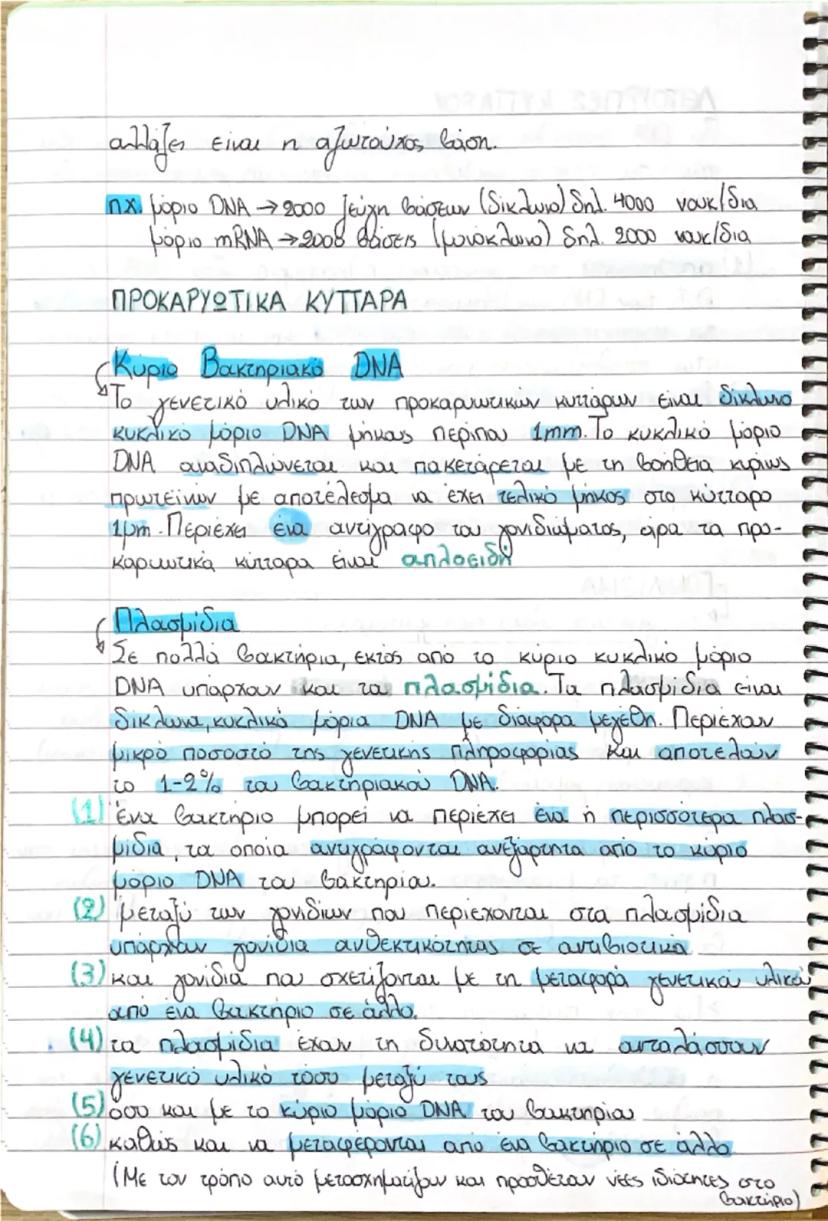 αλλάζει είναι η αζωτούχος βάση.
π.χ. μόριο DNA → 2000 ζεύγη βάσεων (δίκλωνο) δηλ. 4000 νουκ/δια
μόριο mRNA → 2000 βάσεις (μονόκλωνο) δηλ. 2000 νουκ/δια
ΠΡΟΚΑΡΥΩΤΙΚΑ ΚΥΤΤΑΡΑ
Κύριο Βακτηριακό DNA
Το γενετικό υλικό των προκαρυωτικών κυττάρων είναι δίκλωνο
κυκλικό μόριο DNA μήκους περίπου 1mm. Το κυκλικό μόριο
DNA αναδιπλώνεται και πακετάρεται με τη βοήθεια κυρίως
πρωτεϊνών με αποτέλεσμα να έχει τελικό μήκος στο κύτταρο
1μm. Περιέχει ένα αντίγραφο του γονιδιώματος, άρα τα προ-
καρυωτικά κύτταρα είναι απλοειδή
Πλασμίδια
Σε πολλά βακτήρια, εκτός από το κύριο κυκλικό μόριο
DNA υπάρχουν και τα πλασμίδια. Τα πλασμίδια είναι
δίκλωνα, κυκλικά μόρια DNA με διάφορα μεγέθη. Περιέχουν
μικρό ποσοστό της γενετικής πληροφορίας και αποτελούν
το 1-2% του βακτηριακού DNA.
(1) Ένα βακτήριο μπορεί να περιέχει ένα ή περισσότερα πλασ-
μίδια, τα οποία αντιγράφονται ανεξάρτητα από το κύριο
μόριο DNA του βακτηρίου.
(2) μεταξύ των γονιδίων που περιέχονται στα πλασμίδια
υπάρχουν γονίδια ανθεκτικότητας σε αντιβιοτικά
(3) και γονίδια που σχετίζονται με τη μεταφορά γενετικού υλικού
από ένα βακτήριο σε άλλο.
(4) τα πλασμίδια έχουν τη δυνατότητα να ανταλάσσουν
γενετικό υλικό τόσο μεταξύ τους
(5) όσο και με το κύριο μόριο DNA του βακτηρίου
(6) καθώς και να μεταφέρονται από ένα βακτήριο σε άλλο
(Με τον τρόπο αυτό μετασχηματίζουν και προσθέτουν νέες ιδιότητες στο
βακτήριο)